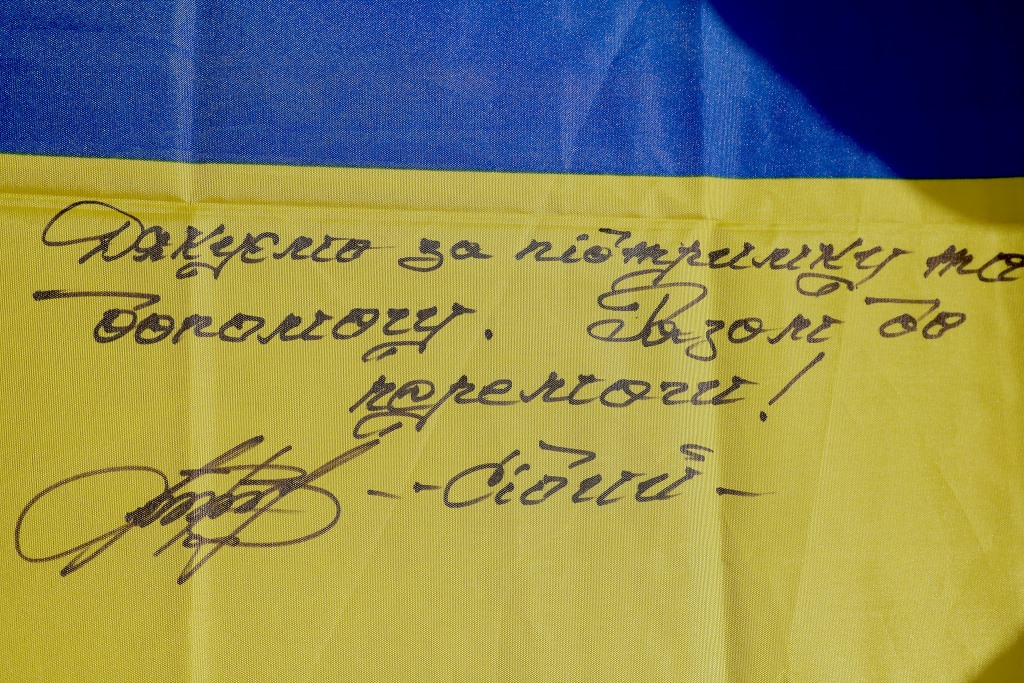 Дякуємо за підтримку та
допомогу. Разом до
перемоги!
- Сідий -